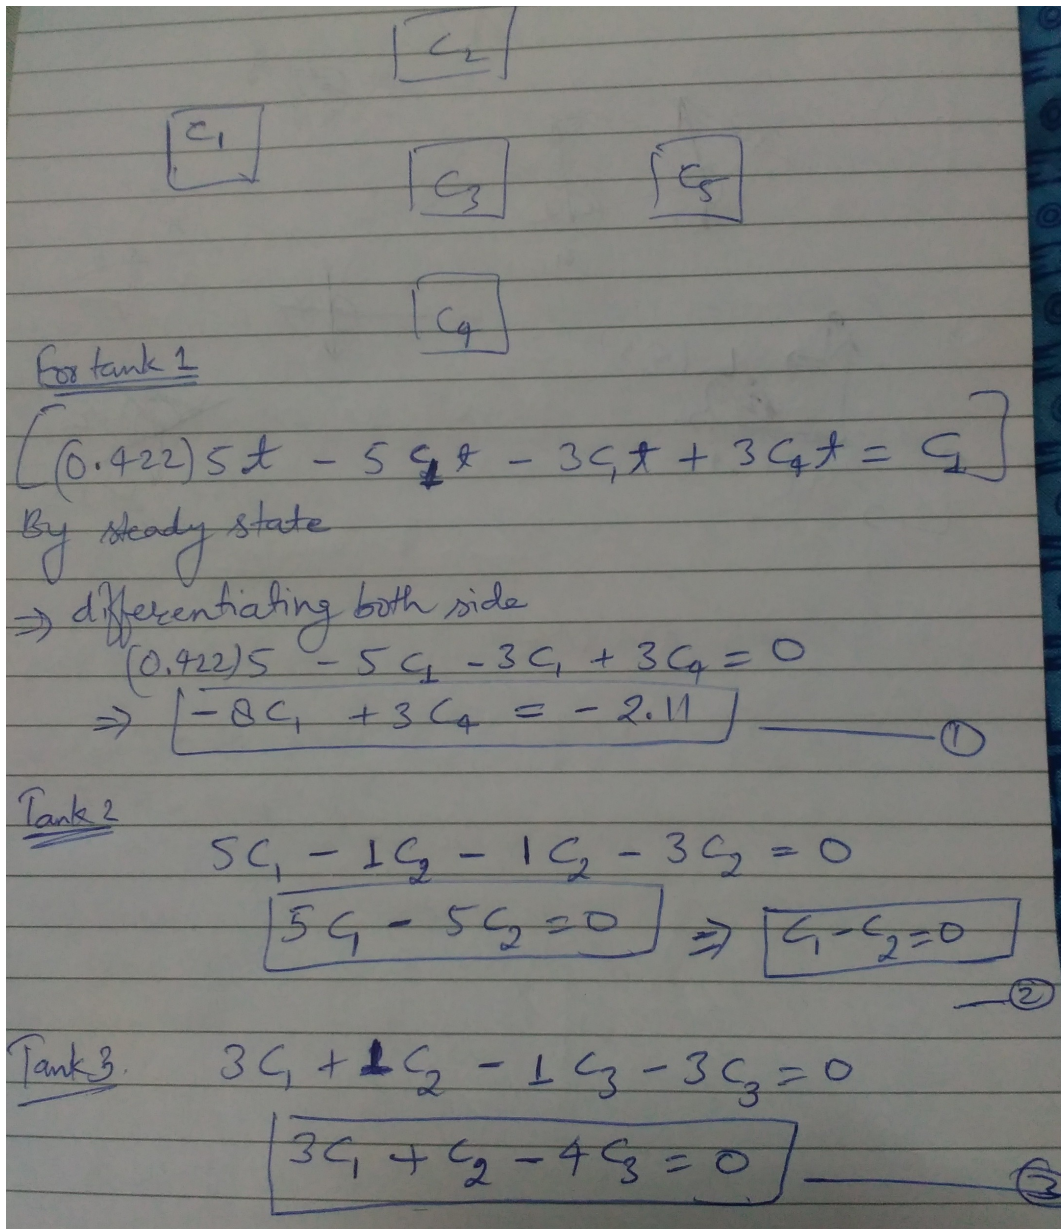 C₂
C₁
C₃ C₅
C₄
For tank 1
[(0.422)5t - 5C₁t - 3C₁t + 3C₄t = C₁]
By steady state
⇒ differentiating both side
(0.422)5 - 5C₁ - 3C₁ + 3C₄ = 0
⇒ -8C₁ + 3C₄ = -2.11 ①
Tank 2
5C₁ - 1C₂ - 1C₂ - 3C₂ = 0
5C₁ - 5C₂ = 0 ⇒ C₁ - C₂ = 0
②
Tank 3. 3C₁ + 1C₂ - 1C₃ - 3C₃ = 0
3C₁ + C₂ - 4C₃ = 0 ③